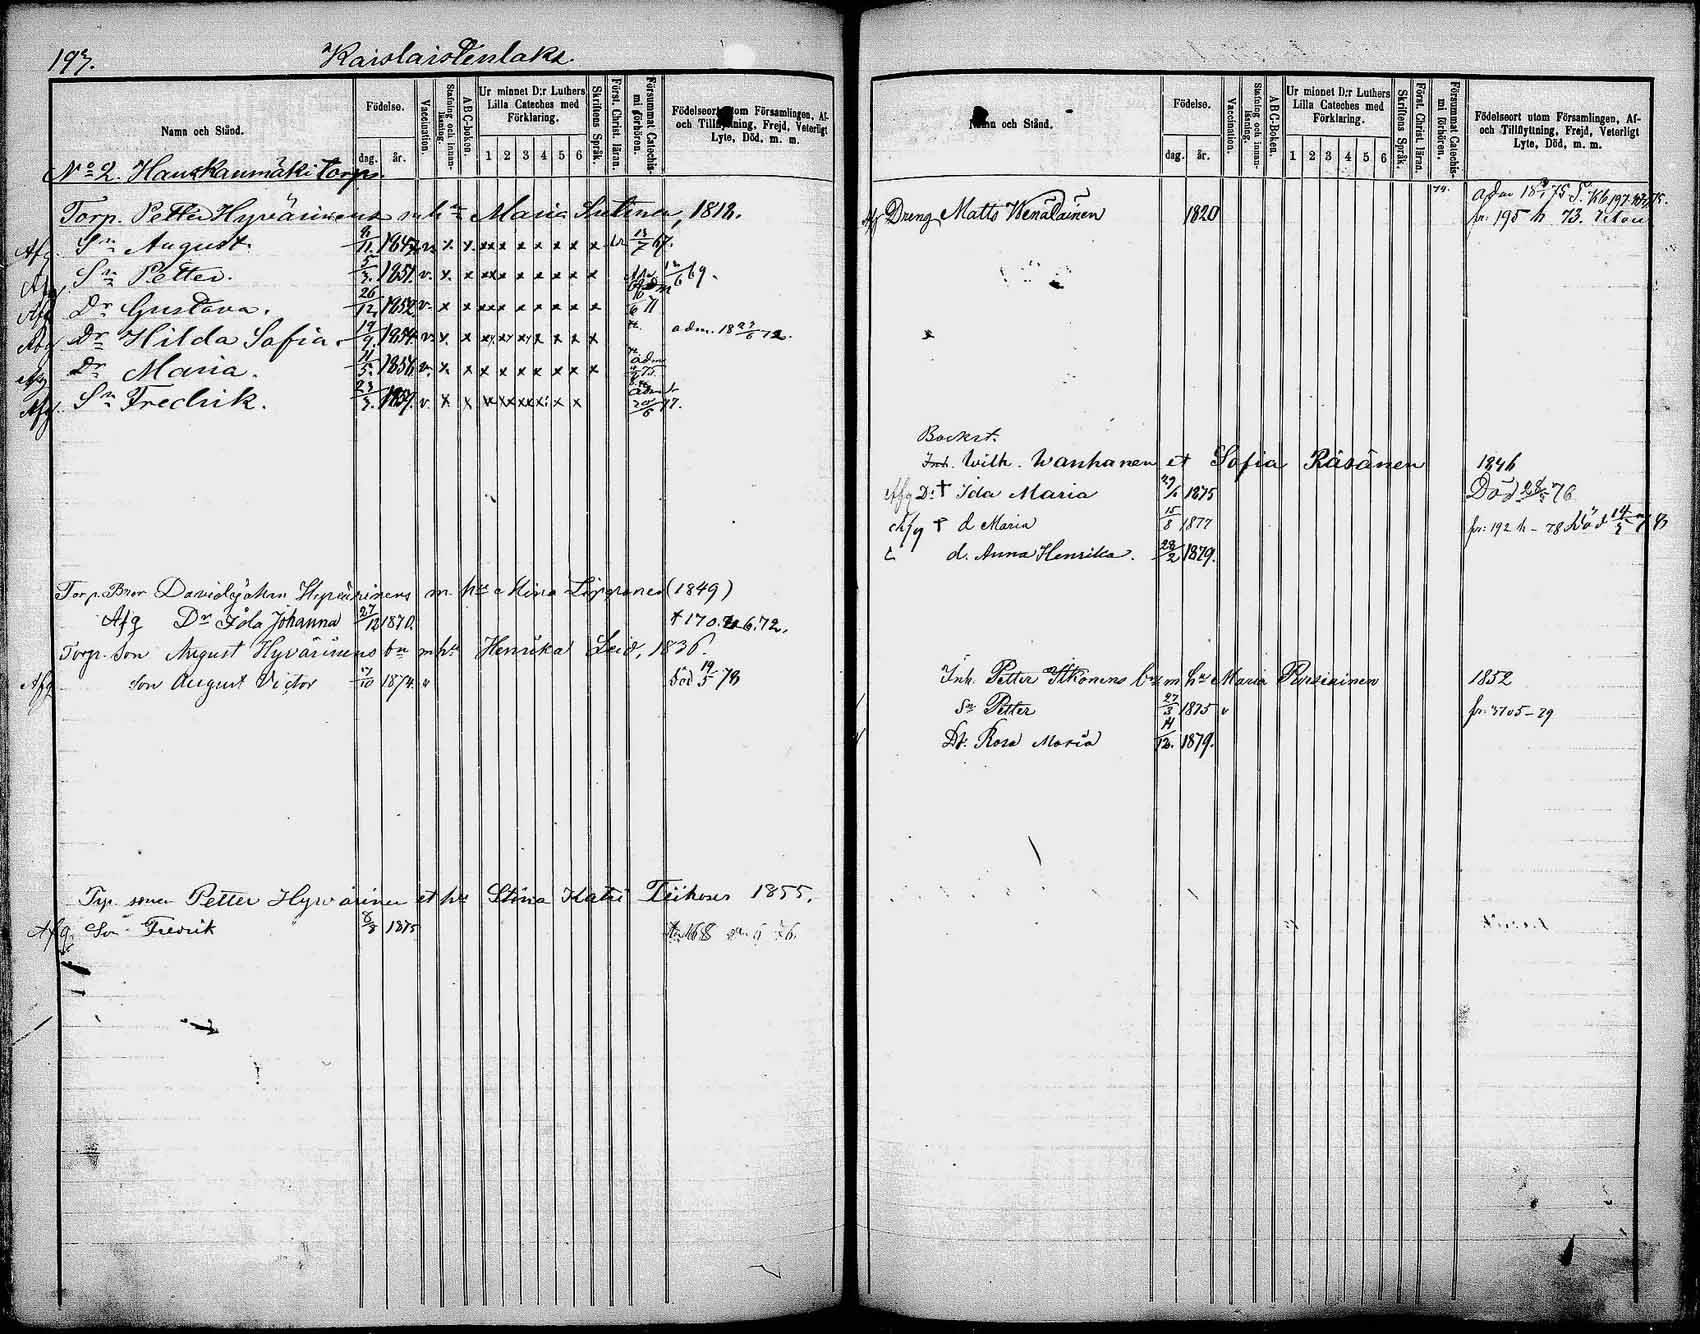 197.
Kaislaistenlaks.
Namn och Stånd.
Födelse.
dag.
år.
Vaccination.
Stafning och innan-läsning.
A B C-boken.
Ur minnet D:r Luthers
Lilla Cateches med
Förklaring.
1 2 3 4 5 6
Skriftens Språk.
Först. Christ. läran.
Försummat Catechis-
mi förhören.
Födelseort utom Församlingen, Af-
och Tillflyttning, Frejd, Veterligt
Lyte, Död, m. m.
No 2. Haukkamäki torp.
Torp. Petter Hyvärinens m hu Maria Sutinen, 1812.
Afg. Sn August. 8/11. 1847. v. x x x x x x x x x 13/7 67.
Afg Sn Petter. 5/3. 1851. v. x. x x x x x x x x 12/6 69.
Afg Dr Gustava. 26/12. 1852. v. x x x x x x x x x 71
Afg Dr Hilda Sofia. 19/9. 1854. v. x x x x x x x x x adm. 18 23/6 72.
Afg Dr Maria. 11/5. 1856. v. x x x x x x x x x adm 75.
Afg. Sn Fredrik. 23/3. 1859. v. x x x x x x x x adm 20/6 77.
Torp. Bror David Johan Hyvärinens m. hu Stina Lipponen (1849)
Afg Dr Ida Johanna 27/12 1870. + 170. 6.72.
Torp. Son August Hyvärinens bn m hu Henrika Leid. 1836.
Afg. Son August Victor /10 1874. v död 19/5 78
Torp. sonen Petter Hyvärinen et hu Stina Katri Tiihonen 1855.
Afg. Son Fredrik 8/3 1875 168 76.
Namn och Stånd.
Födelse.
dag.
år.
Vaccination.
Stafning och innan-läsning.
A B C-Boken.
Ur minnet D:r Luthers
Lilla Cateches med
Förklaring.
1 2 3 4 5 6
Skriftens Språk.
Först. Christ. läran.
Försummat Catechis-
mi förhören.
Födelseort utom Församlingen, Af-
och Tillflyttning, Frejd, Veterligt
Lyte, Död, m. m.
74.
Afg Dreng Matts Wenäläinen 1820
fr: 195 h 73.
Backst.
Inh. Wilh. Wanhanen et Sofia Räsänen 1846
Afg D: + Ida Maria 1875 Död 28/5 76
Afg + d Maria 15/8 1877 fr: 192 h - 78 död 14/5 78
d. Anna Henrika. 28/2 1879.
Inh. Petter Itkonens bn m hu Maria Rusiainen 1852
Sn Petter 27/3 1875 v fr: - 79
Dr. Rosa Maria 14/12. 1879.